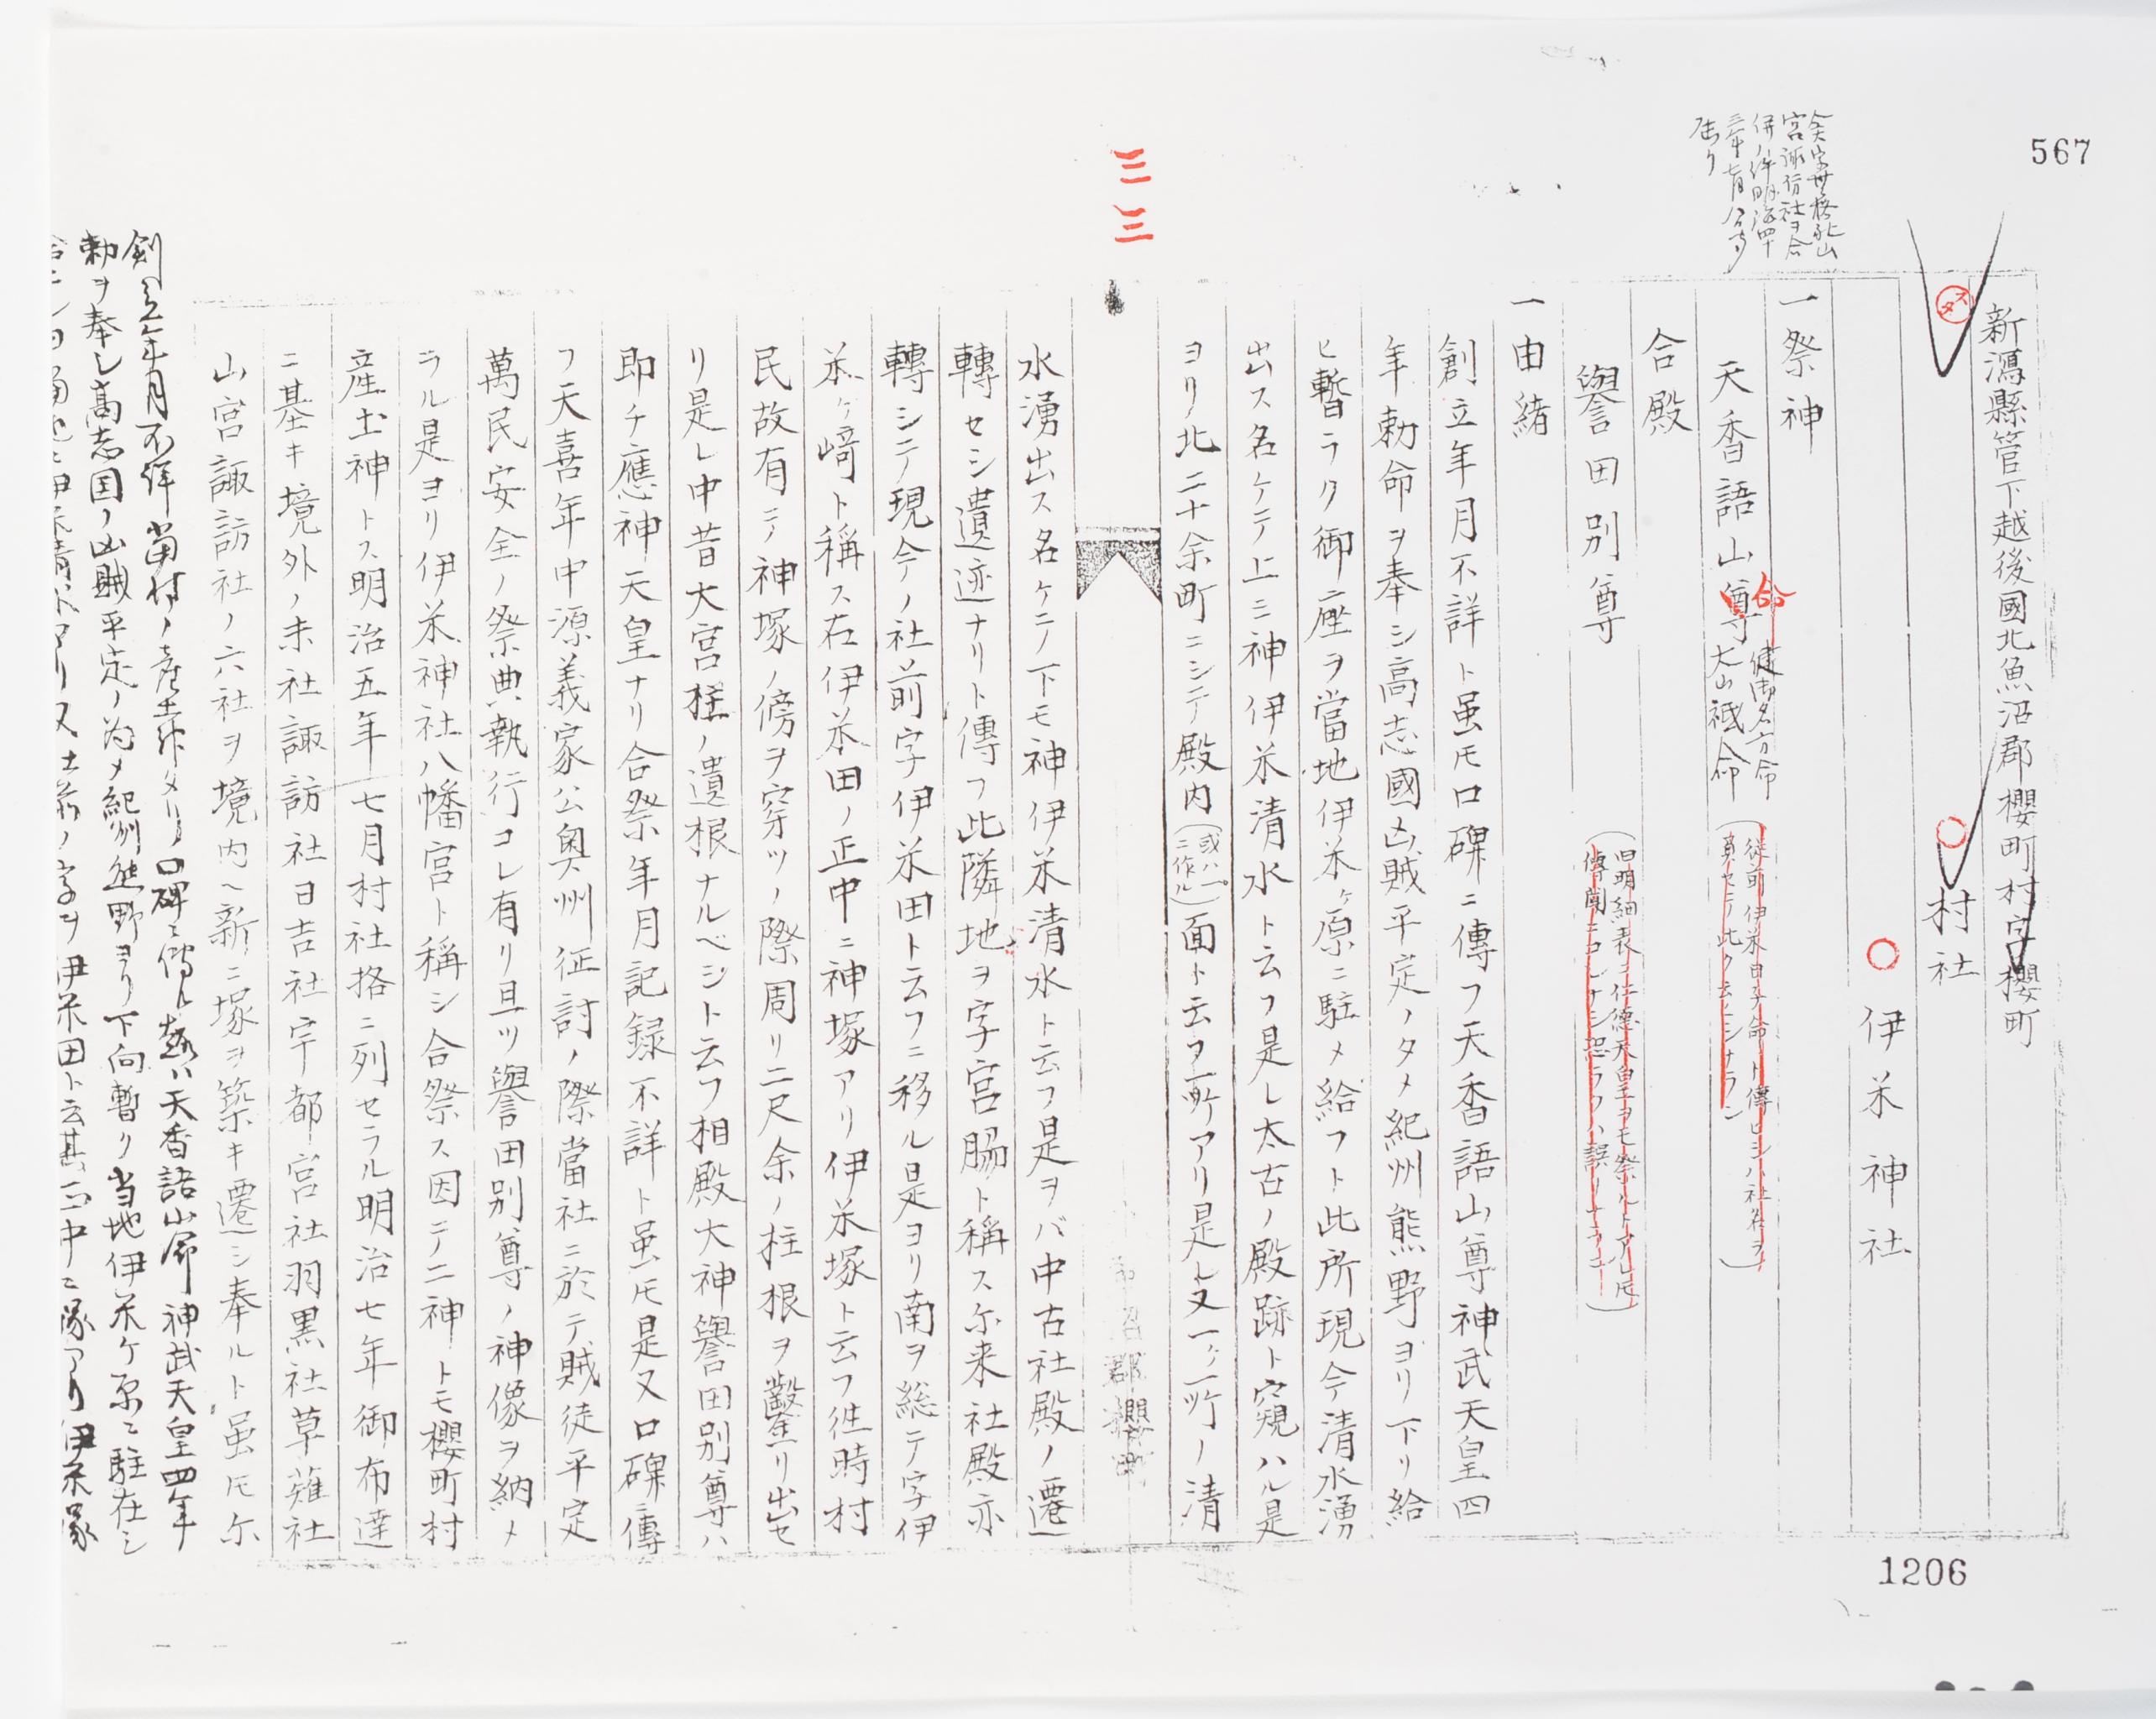 567
新潟縣管下越後國北魚沼郡櫻町村字櫻町
村社
伊米神社
一祭神
天香語山尊命
健御名方命
大山祗命
(從前伊米日子命ト傳ヒシハ社名ヲ
合殿
譽田別尊
(旧明細表ニ仁徳天皇ヲモ祭ルトアレ𪜈
一由緒
創立年月不詳ト虽𪜈口碑ニ傳フ天香語山尊神武天皇四
年勅命ヲ奉シ高志國凶賊平定ノタメ紀州熊野ヨリ下リ給
ヒ暫ラク御座ヲ當地伊米ヶ原ニ駐メ給フト此所現今清水湧
出ス名ケテ上ミ神伊米清水ト云フ是レ太古ノ殿跡ト窺ハル是
ヨリ北二十余町ニシテ殿内(或ハ ニ作ル)面ト云フ所アリ是レ又一ヶ所ノ清
水湧出ス名ケテ下モ神伊米清水ト云フ是ヲバ中古社殿ノ遷
轉セシ遺迹ナリト傳フ此隣地ヲ字宮腸ト稱ス尓来社殿亦
轉シテ現今ノ社前字伊米田ト云フニ移ル是ヨリ南ヲ総テ字伊
米ヶ﨑ト稱ス右伊米田ノ正中ニ神塚アリ伊米塚ト云フ徃時村
民故有テ神塚ノ傍ヲ穿ツノ際周リ二尺余ノ柱根ヲ鑿リ出セ
リ是レ中昔大宮柱ノ遺根ナルベシト云フ相殿大神譽田別尊ハ
即チ應神天皇ナリ合祭年月記録不詳ト虽𪜈是又口碑傳
フ天喜年中源義家公奥州征討ノ際當社ニ於テ賊徒平定
萬民安全ノ祭典執行コレ有リ且ツ譽田別尊ノ神像ヲ納メ
ラル是ヨリ伊米神社八幡宮ト稱シ合祭ス因テ二神トモ櫻町村
産土神トス明治五年七月村社格ニ列セラル明治七年御布達
ニ基キ境外ノ末社諏訪社日吉社宇都宮社羽黒社草薙社
山宮諏訪社ノ六社ヲ境内ヘ新ニ塚ヲ築キ遷シ奉ルト虽𪜈尓
創立年月不詳當村ノ産土神タリ口碑ニ傳ル 天香語山命神武天皇四年
勅ヲ奉レ髙志国ノ凶賊平定ノ為メ紀州熊野ヨリ下向暫ク当地伊米ケ原ニ駐在シ
伊米清水アリ又社前ノ字ヲ伊米田ト云其正中ニ塚アリ伊米塚
三三
1206